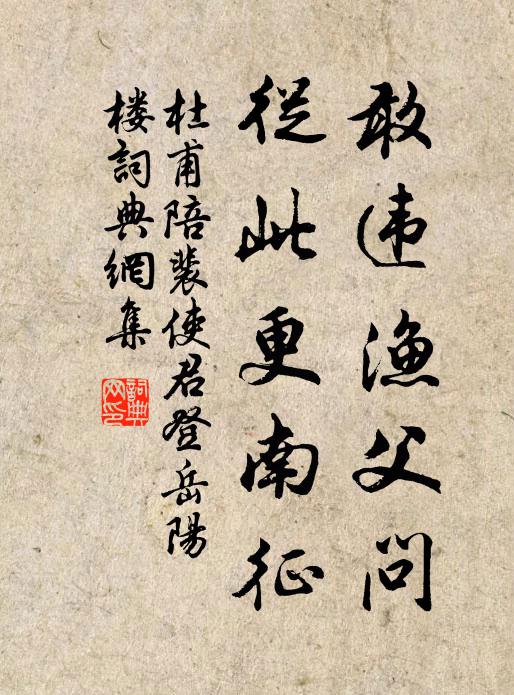 敢违漁父问
從此更南征
杜甫陪裴使君登岳陽
楼詞典網集
詞典
网印